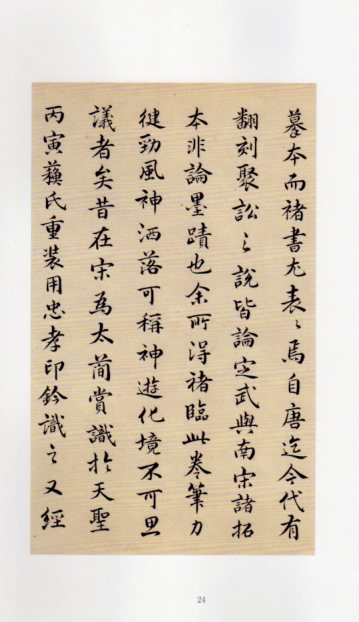 摹本而褚書尤表〻焉自唐迄今代有
翻刻聚訟〻說皆論定武與南宋諸拓
本非論墨蹟也余所得褚臨此卷筆力
健勁風神洒落可稱神遊化境不可思
議者矣昔在宋為太簡賞識於天聖
丙寅蘇氏重裝用忠孝印鈐識之又經
24